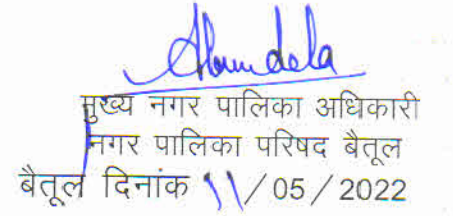 मुख्य नगर पालिका अधिकारी
नगर पालिका परिषद बैतूल
बैतूल दिनांक 11/05/2022